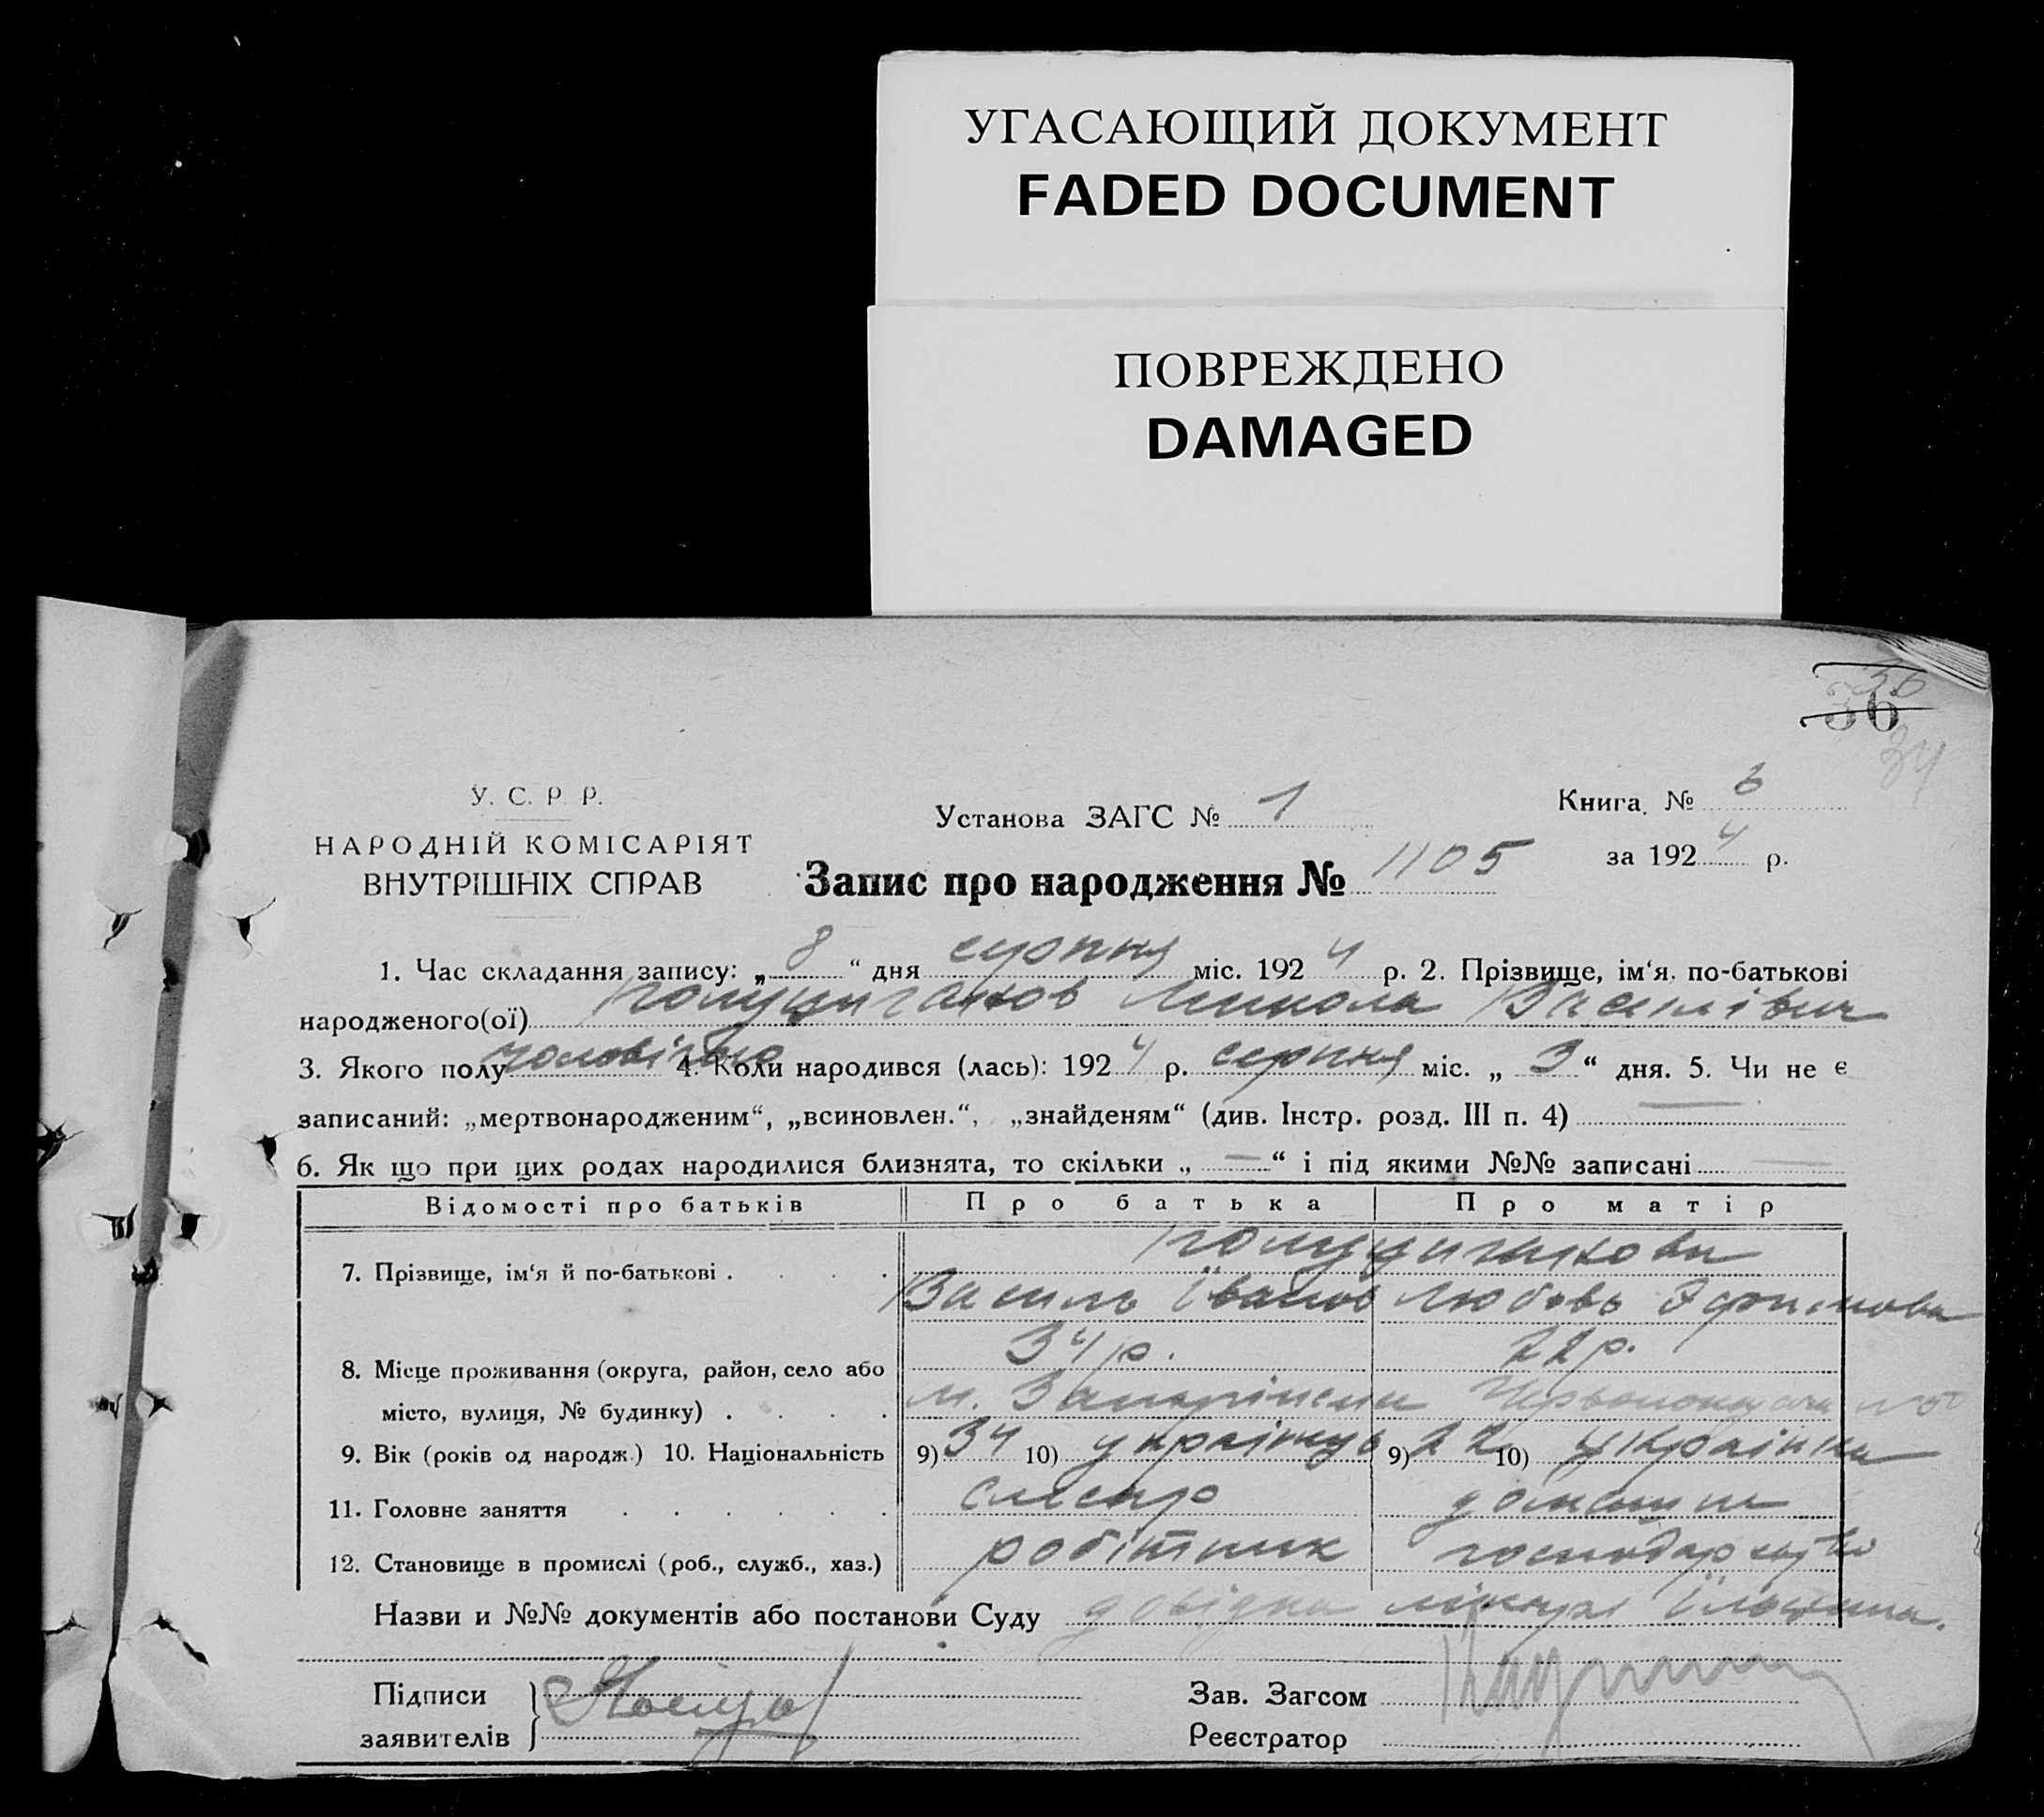 УГАСАЮЩИЙ ДОКУМЕНТ
FADED DOCUMENT
ПОВРЕЖДЕНО
DAMAGED
36
36
34
У. С. Р. Р.
НАРОДНІЙ КОМІСАРІЯТ
ВНУТРІШНІХ СПРАВ
Установа ЗАГС № 1
Книга № 6
за 1924 р.
Запис про народження № 1105
1. Час складання запису: „ 8 “ дня серпня міс. 1924 р. 2. Прізвище, ім‘я, по-батькові
народженого(ої) Микола Васильович
3. Якого полу чоловічого 4. Коли народився (лась): 1924 р. серпня міс. „ 3 “ дня. 5. Чи не є
записаний: „мертвонародженим“, „всиновлен.“, „знайденям“ (див. Інстр. розд. III п. 4) —
6. Як що при цих родах народилися близнята, то скільки „ — “ і під якими №№ записані —
Відомості про батьків Про батька Про матір
7. Прізвище, ім‘я й по-батькові
Василь Іванов Любовь
34 р. 22 р.
8. Місце проживання (округа, район, село або
місто, вулиця, № будинку) м.
9. Вік (років од народж.) 10. Національність 9) 34 10) українець 9) 22 10) українка
11. Головне заняття слесар домашнє
12. Становище в промислі (роб., служб., хаз.) робітник господарство
Назви и №№ документів або постанови Суду довідка
Підписи
заявителів
Зав. Загсом
Реєстратор